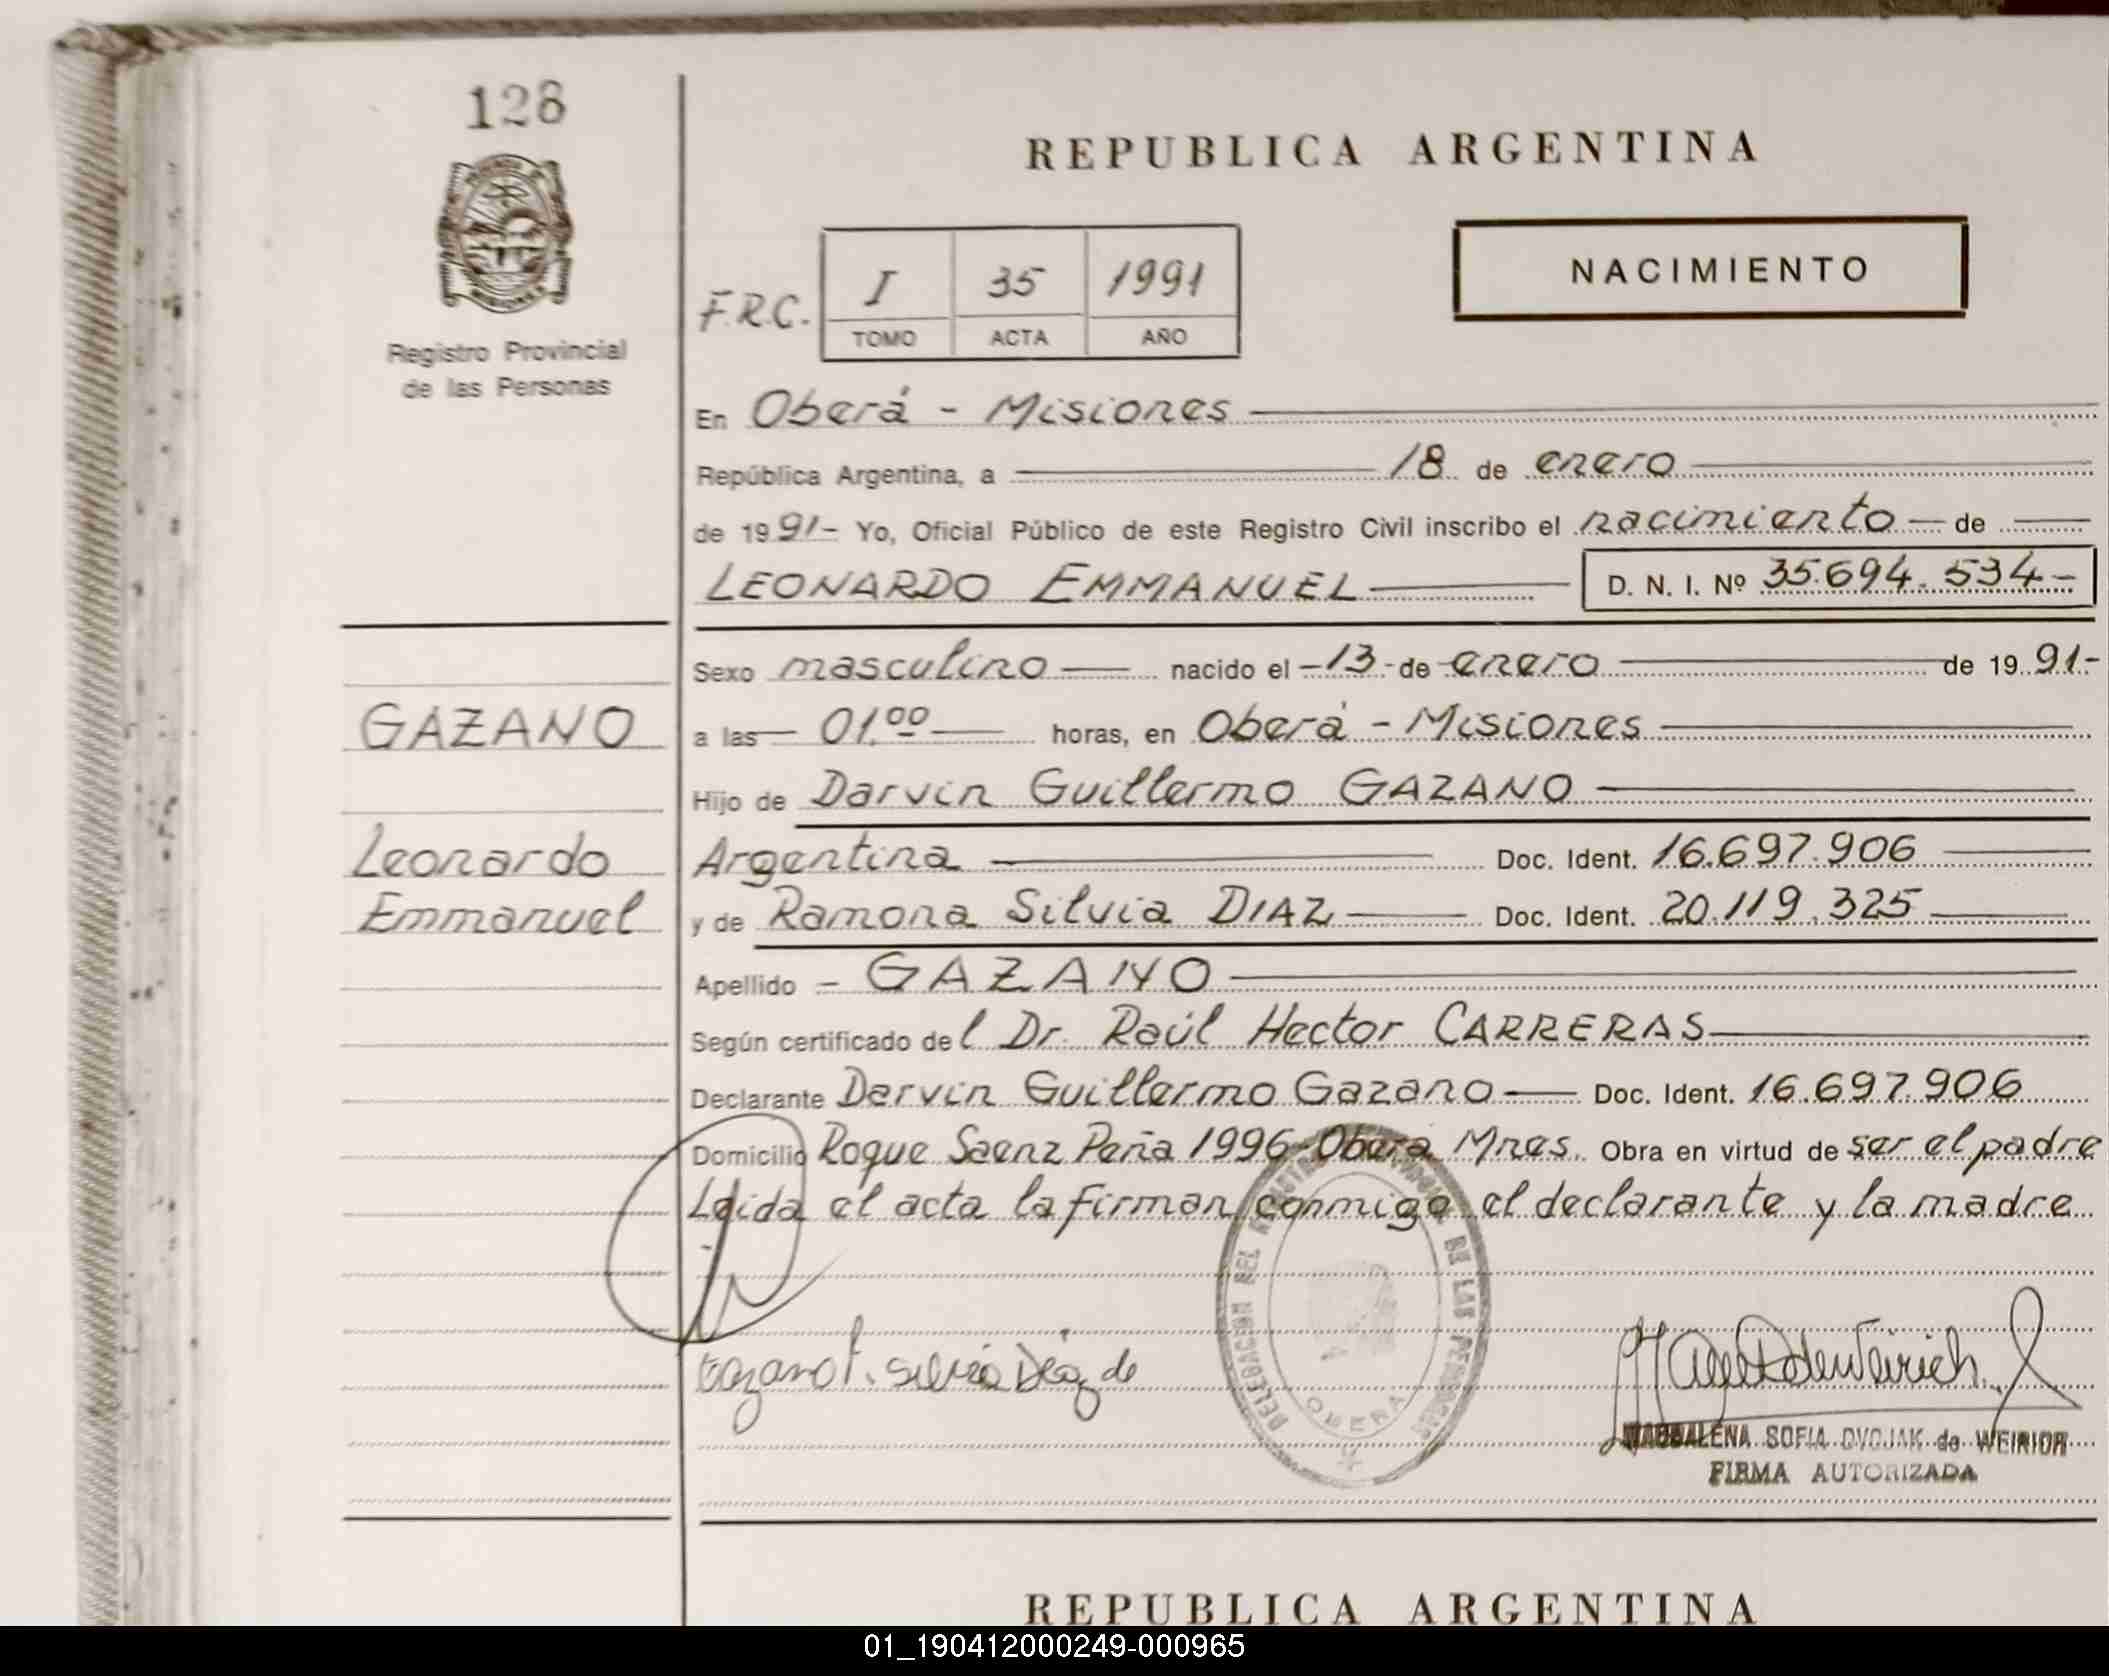 128
REPUBLICA ARGENTINA
NACIMIENTO
F.R.C. I 35 1991
TOMO ACTA AÑO
Registro Provincial
de las Personas
En Oberá - Misiones
República Argentina, a 18 de enero
de 1991- Yo, Oficial Público de este Registro Civil inscribo el nacimiento - de
LEONARDO EMMANUEL D. N. I. Nº 35.694.534-
Sexo masculino nacido el -13- de enero de 1991-
GAZANO
a las 01.00 horas, en Oberá - Misiones
Hijo de Darvin Guillermo GAZANO
Leonardo
Emmanuel
Argentina Doc. Ident. 16.697.906
y de Ramona Silvia DIAZ Doc. Ident. 20.119.325
Apellido - GAZANO
Según certificado del Dr. Raúl Hector CARRERAS
Declarante Darvin Guillermo Gazano Doc. Ident. 16.697.906
Domicilio Roque Saenz Peña 1996-Oberá Mnes. Obra en virtud de ser el padre
Leida el acta la firman conmigo el declarante y la madre
DELEGACION DEL REGISTRO PROVINCIAL DE LAS PERSONAS
OBERA
Silvia Diaz de
MAGDALENA SOFIA DVOJAK de WEIRICH
FIRMA AUTORIZADA
REPUBLICA ARGENTINA
01_190412000249-000965